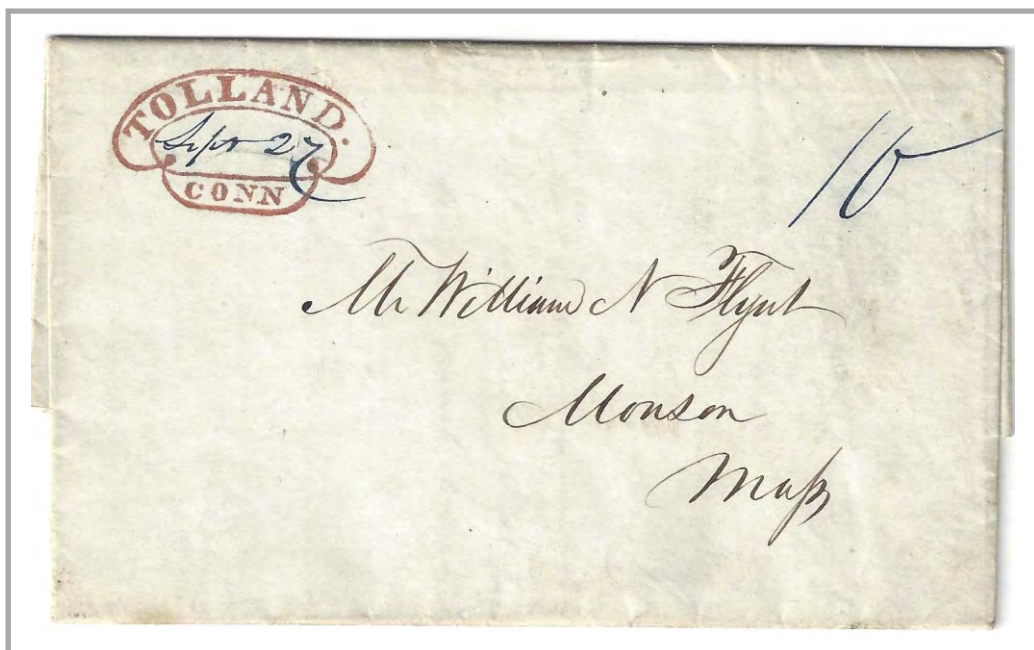 TOLLAND.
Sept 27
CONN
10
Mr William N Flynt
Monson
Mass